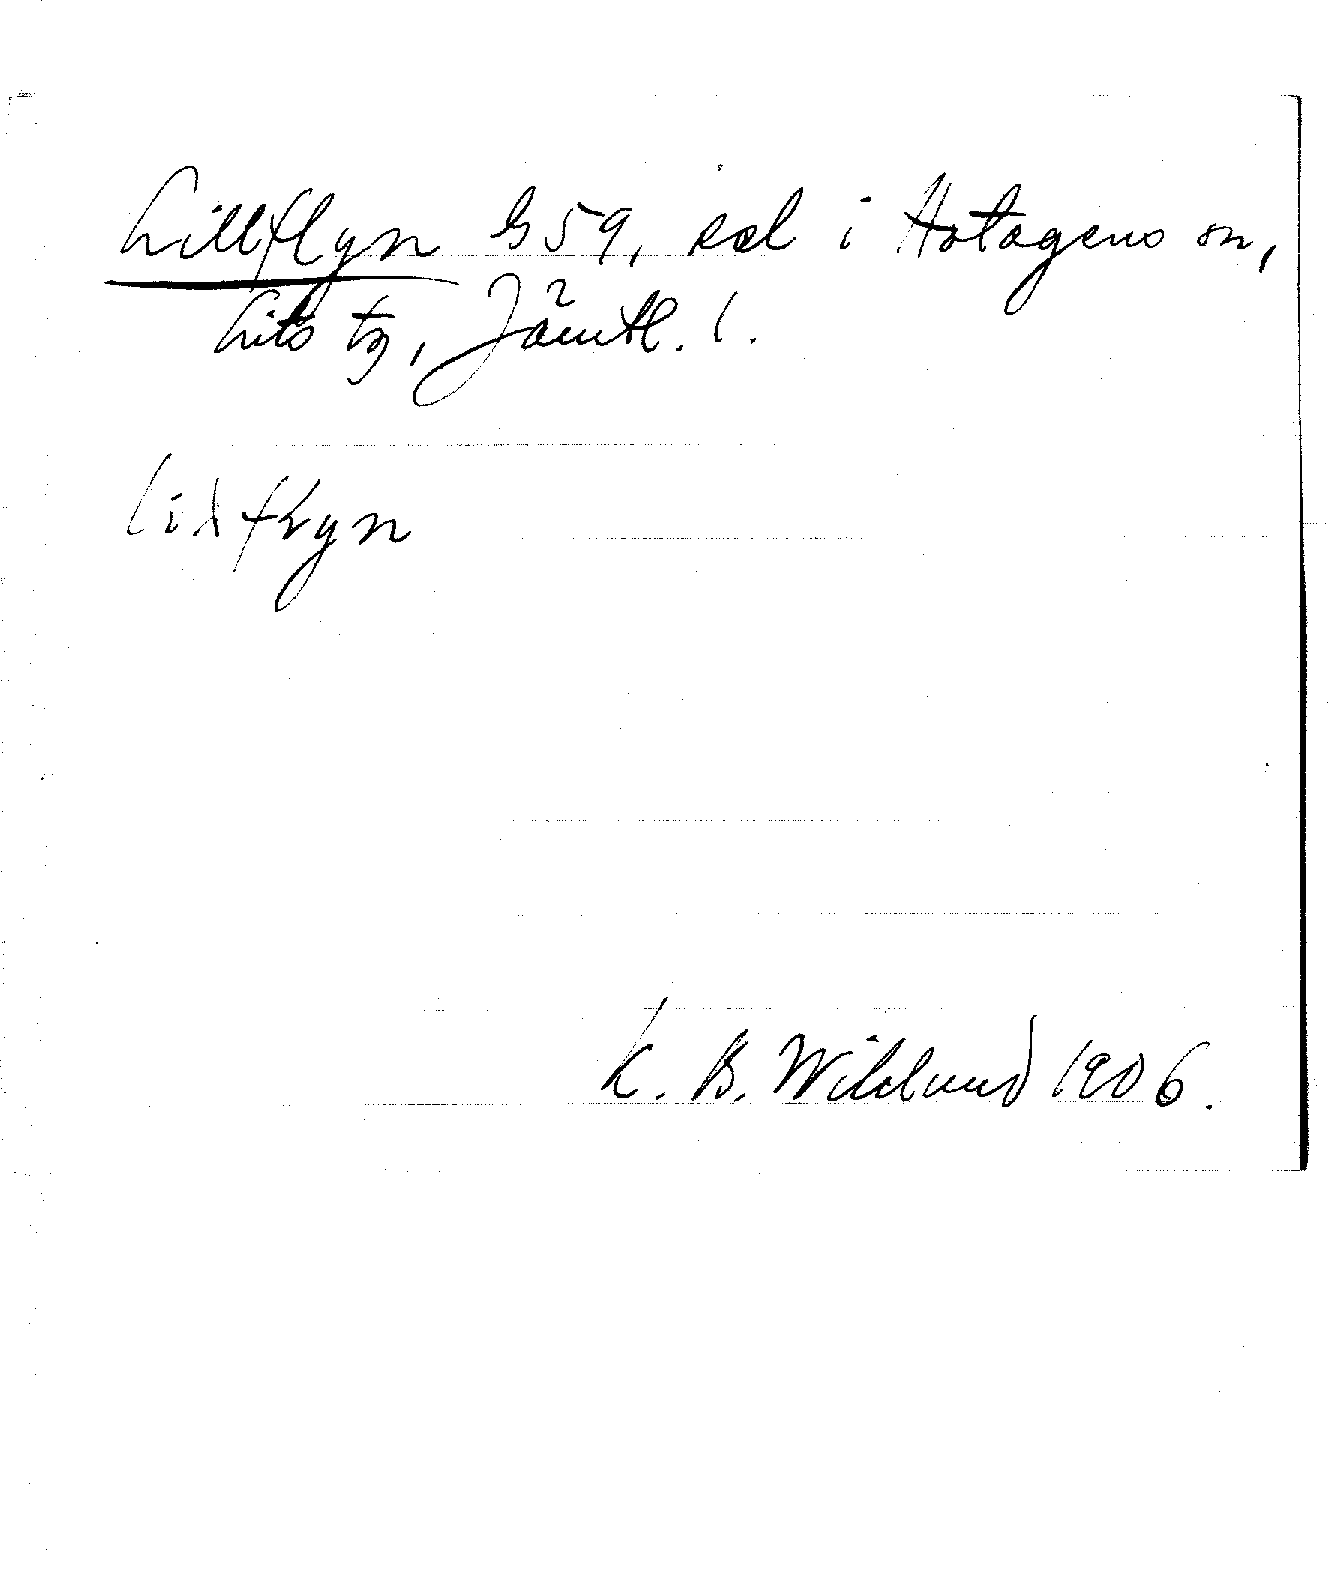 Lillflyn G59, del i Hotagens sn,
Lits tg, Jämtl. l.
liλfλyn
K. B. Wiklund 1906.